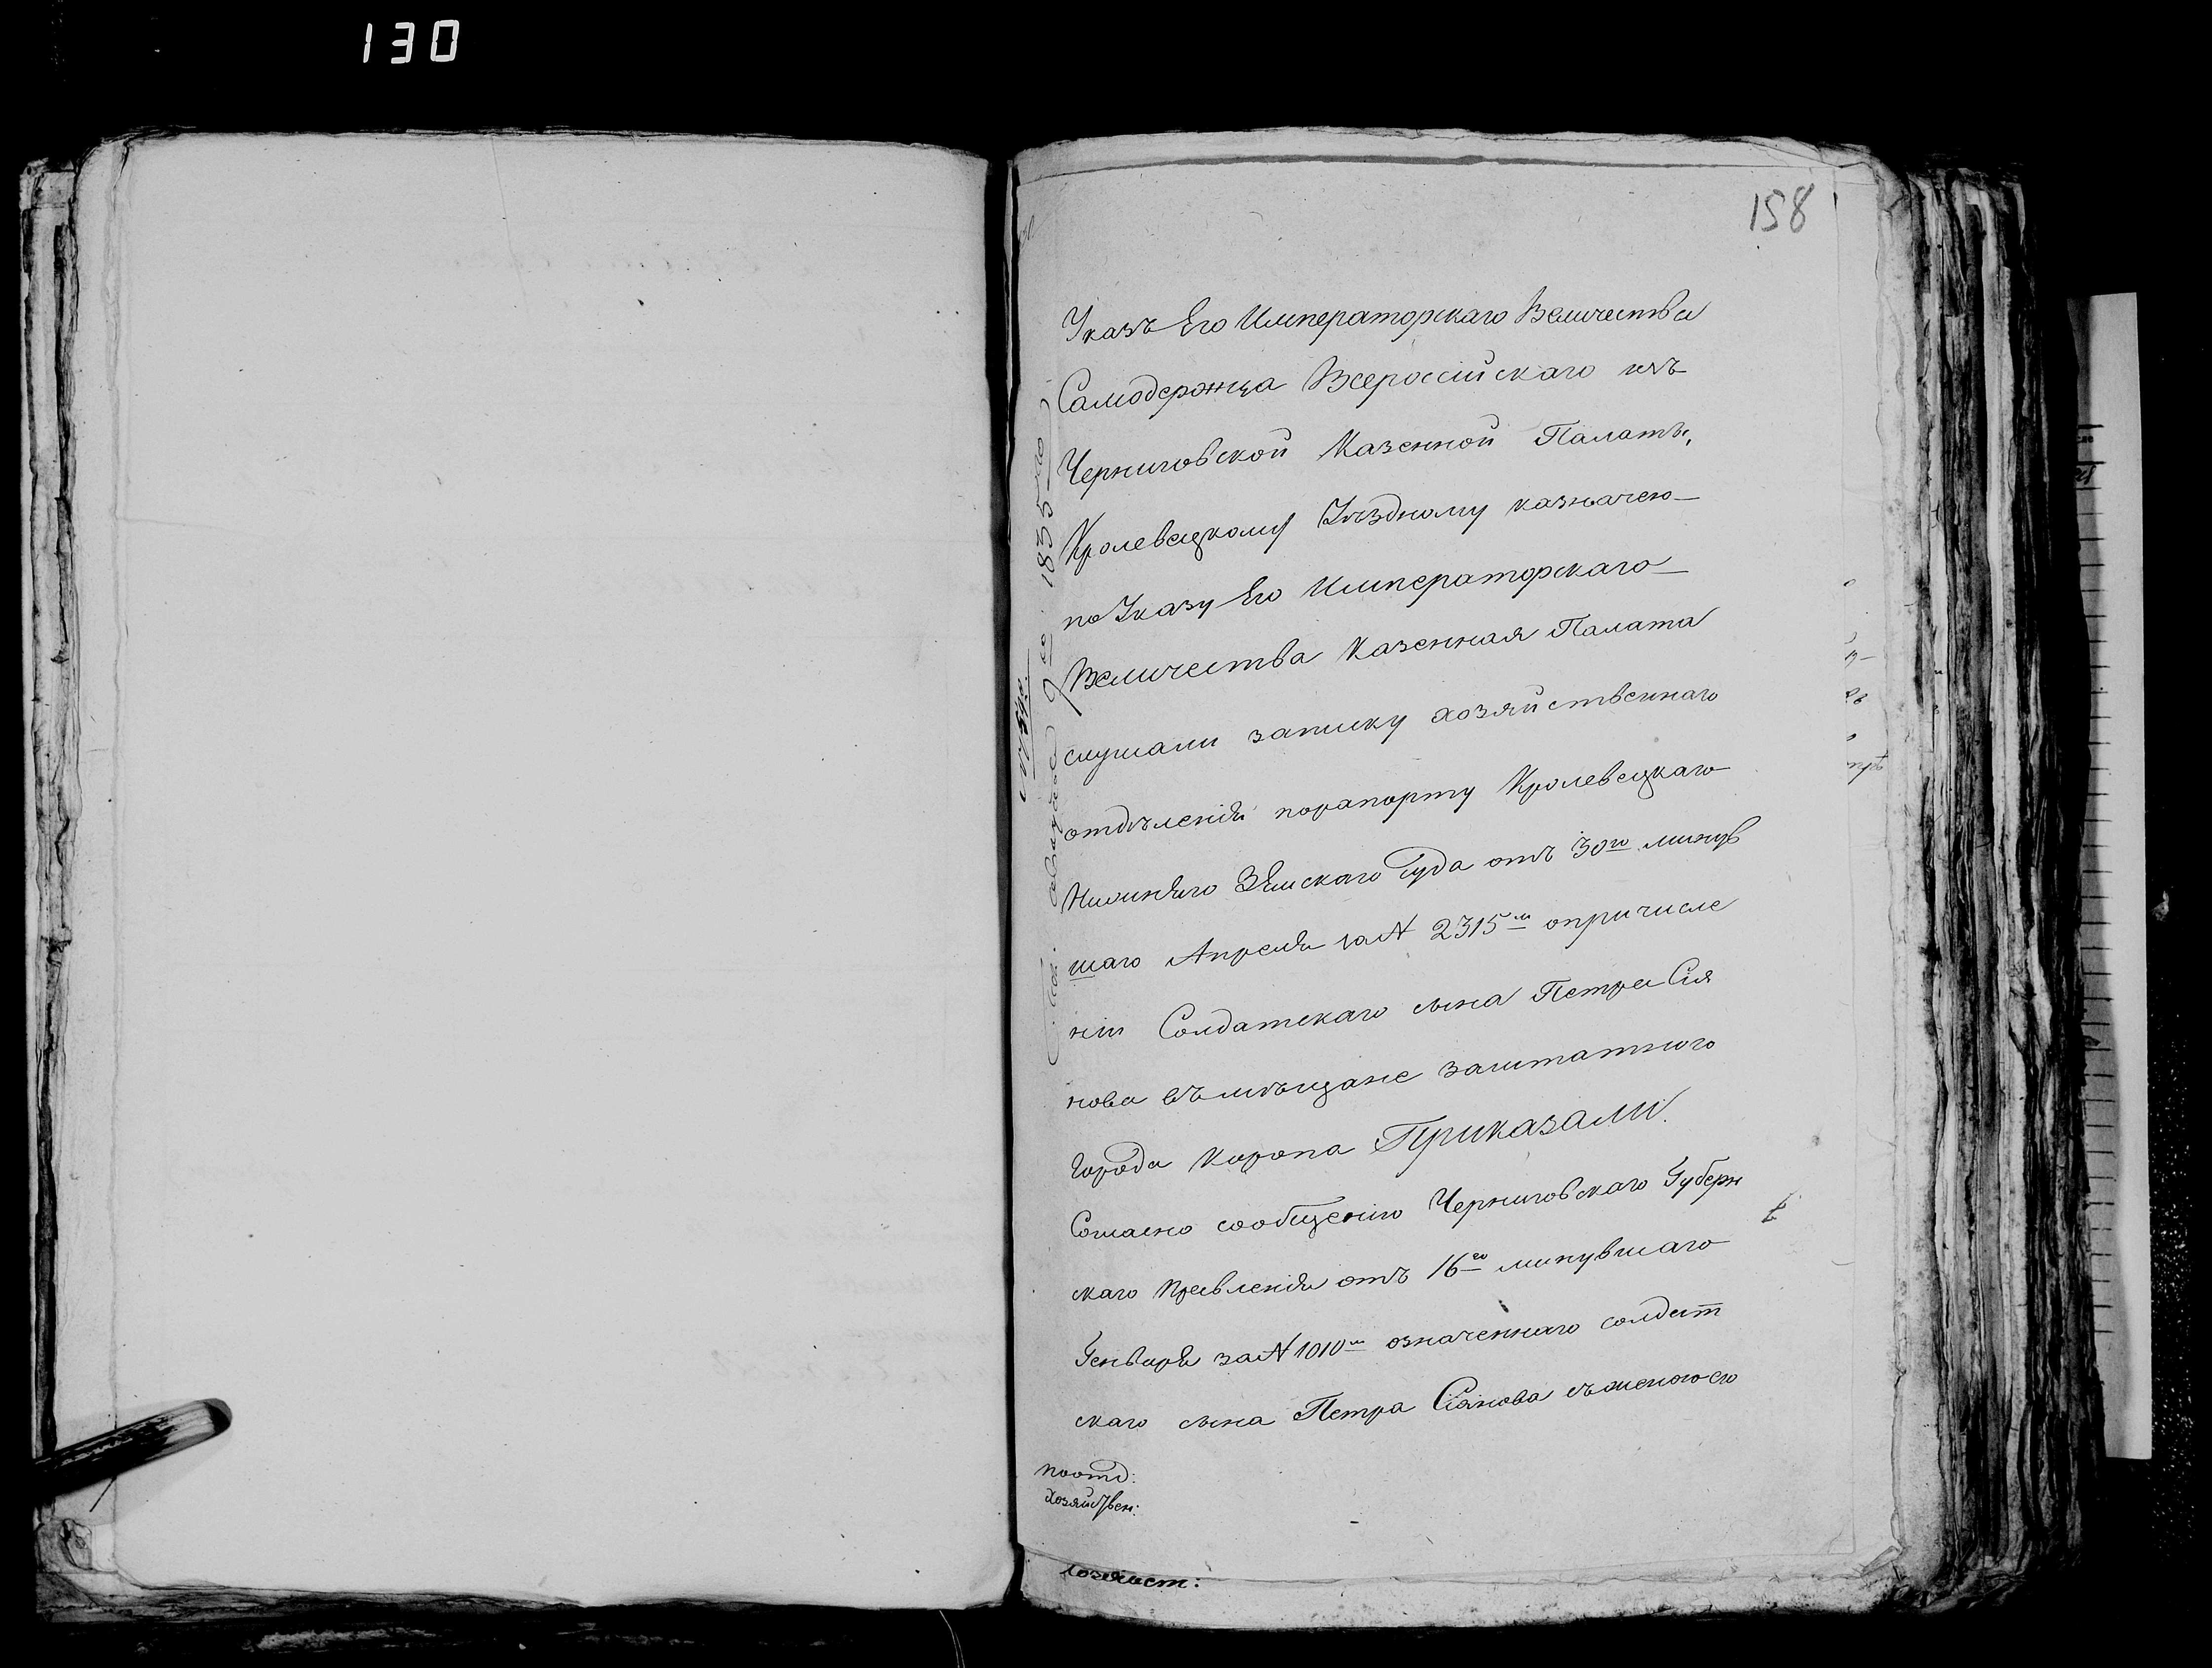 130
158
Указъ Его Императорскаго Величества
Самодержца Всероссійскаго изъ
Черниговской Казенной Палаты,
Кролевецкому Уѣздному казначею
по Указу Его Императорскаго
Величества Казенная Палата
слушали записку хозяйственнаго
отдѣленія порапорту Кролевецкаго
Нижняго Земскаго Суда отъ 30го минув
шаго Апреля за N 2315м опричисле
ніи Солдатскаго сына Петра Сія
нова въ мѣщане заштатного
города Коропа Приказали.
Согласно сообщенію Черниговскаго Губерн
скаго Правленія отъ 16го минувшаго
Генваря за N 1010м означеннаго солдат
скаго сына Петра Сіянова съ женою его
поотд:
хозяйствен:
1835 го